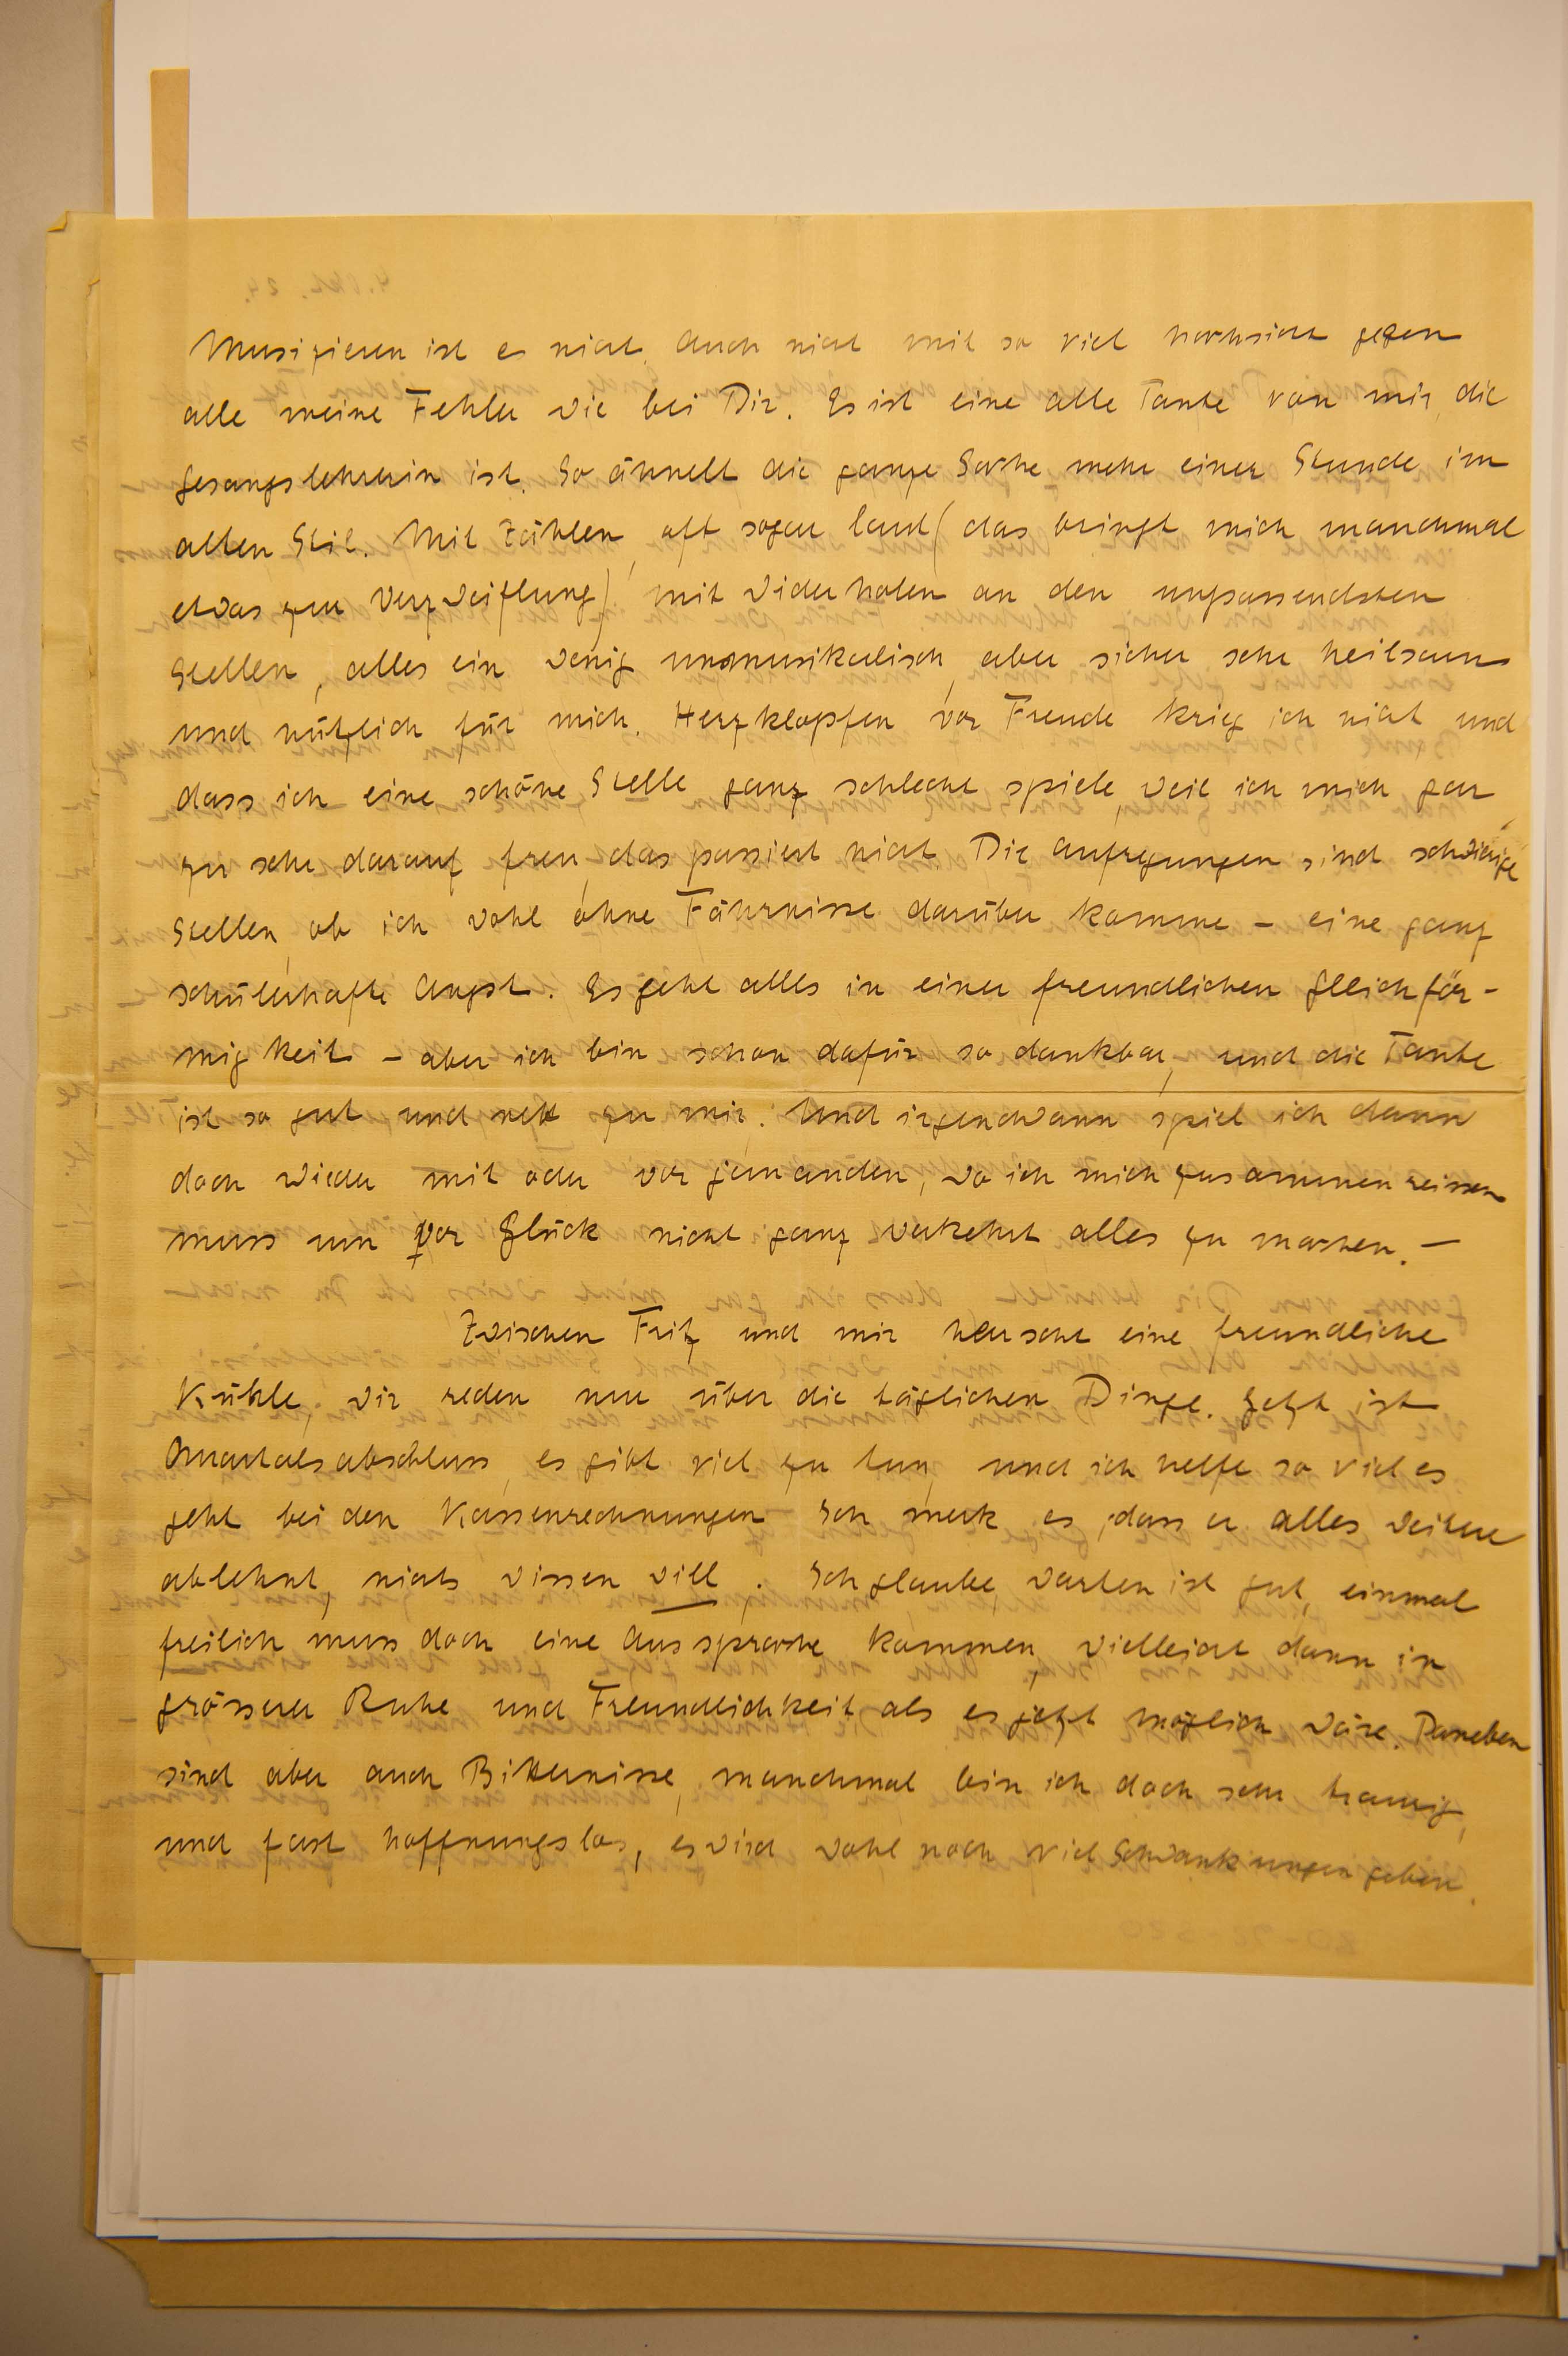 Musizieren ist es nicht, auch nicht mit so viel Nachsicht gegen
alle meine Fehler wie bei Dir. Es ist eine alte Tante von mir, die
Gesangslehrerin ist. So ähnelt die ganze Sache mehr einer Stunde im
alten Stil. Mit Zählen, oft sogar laut (das bringt mich manchmal
etwas zur Verzweiflung) mit Widerholen an den unpassendsten
Stellen, alles ein wenig unmusikalisch, aber sicher sehr heilsam
und nützlich für mich. Herzklopfen vor Freude krieg ich nicht und
dass ich eine schöne Stelle ganz schlecht spiele, weil ich mich gar
zu sehr darauf freu, das passiert nicht. Die Aufregungen sind schwierige
Stellen, ob ich wohl ohne Fährnisse darüber komme – eine ganz
schülerhafte Angst. Es geht alles in einer freundlichen Gleichför-
migkeit – aber ich bin schon dafür so dankbar, und die Tante
ist so gut und nett zu mir. Und irgendwann spiel ich dann
doch wieder mit oder vor jemanden, wo ich mich zusammenreissen
muss um vor Glück nicht ganz verkehrt alles zu machen. –
Zwischen Fritz und mir herrscht eine freundliche
Kühle, wir reden nur über die täglichen Dinge. Jetzt ist
Quartalsabschluss, es gibt viel zu tun, und ich helfe so viel es
geht bei den Kassenrechnungen. Ich merk es, dass er alles weitere
ablehnt, nichts wissen will. Ich glaube, warten ist gut, einmal
freilich muss doch eine Aussprache kommen, vielleicht dann in
grösserer Ruhe und Freundlichkeit als es jetzt möglich wäre. Daneben
sind aber auch Bitternisse, manchmal bin ich doch sehr traurig,
und fast hoffnungslos, es wird wohl noch viel Schwankungen geben.